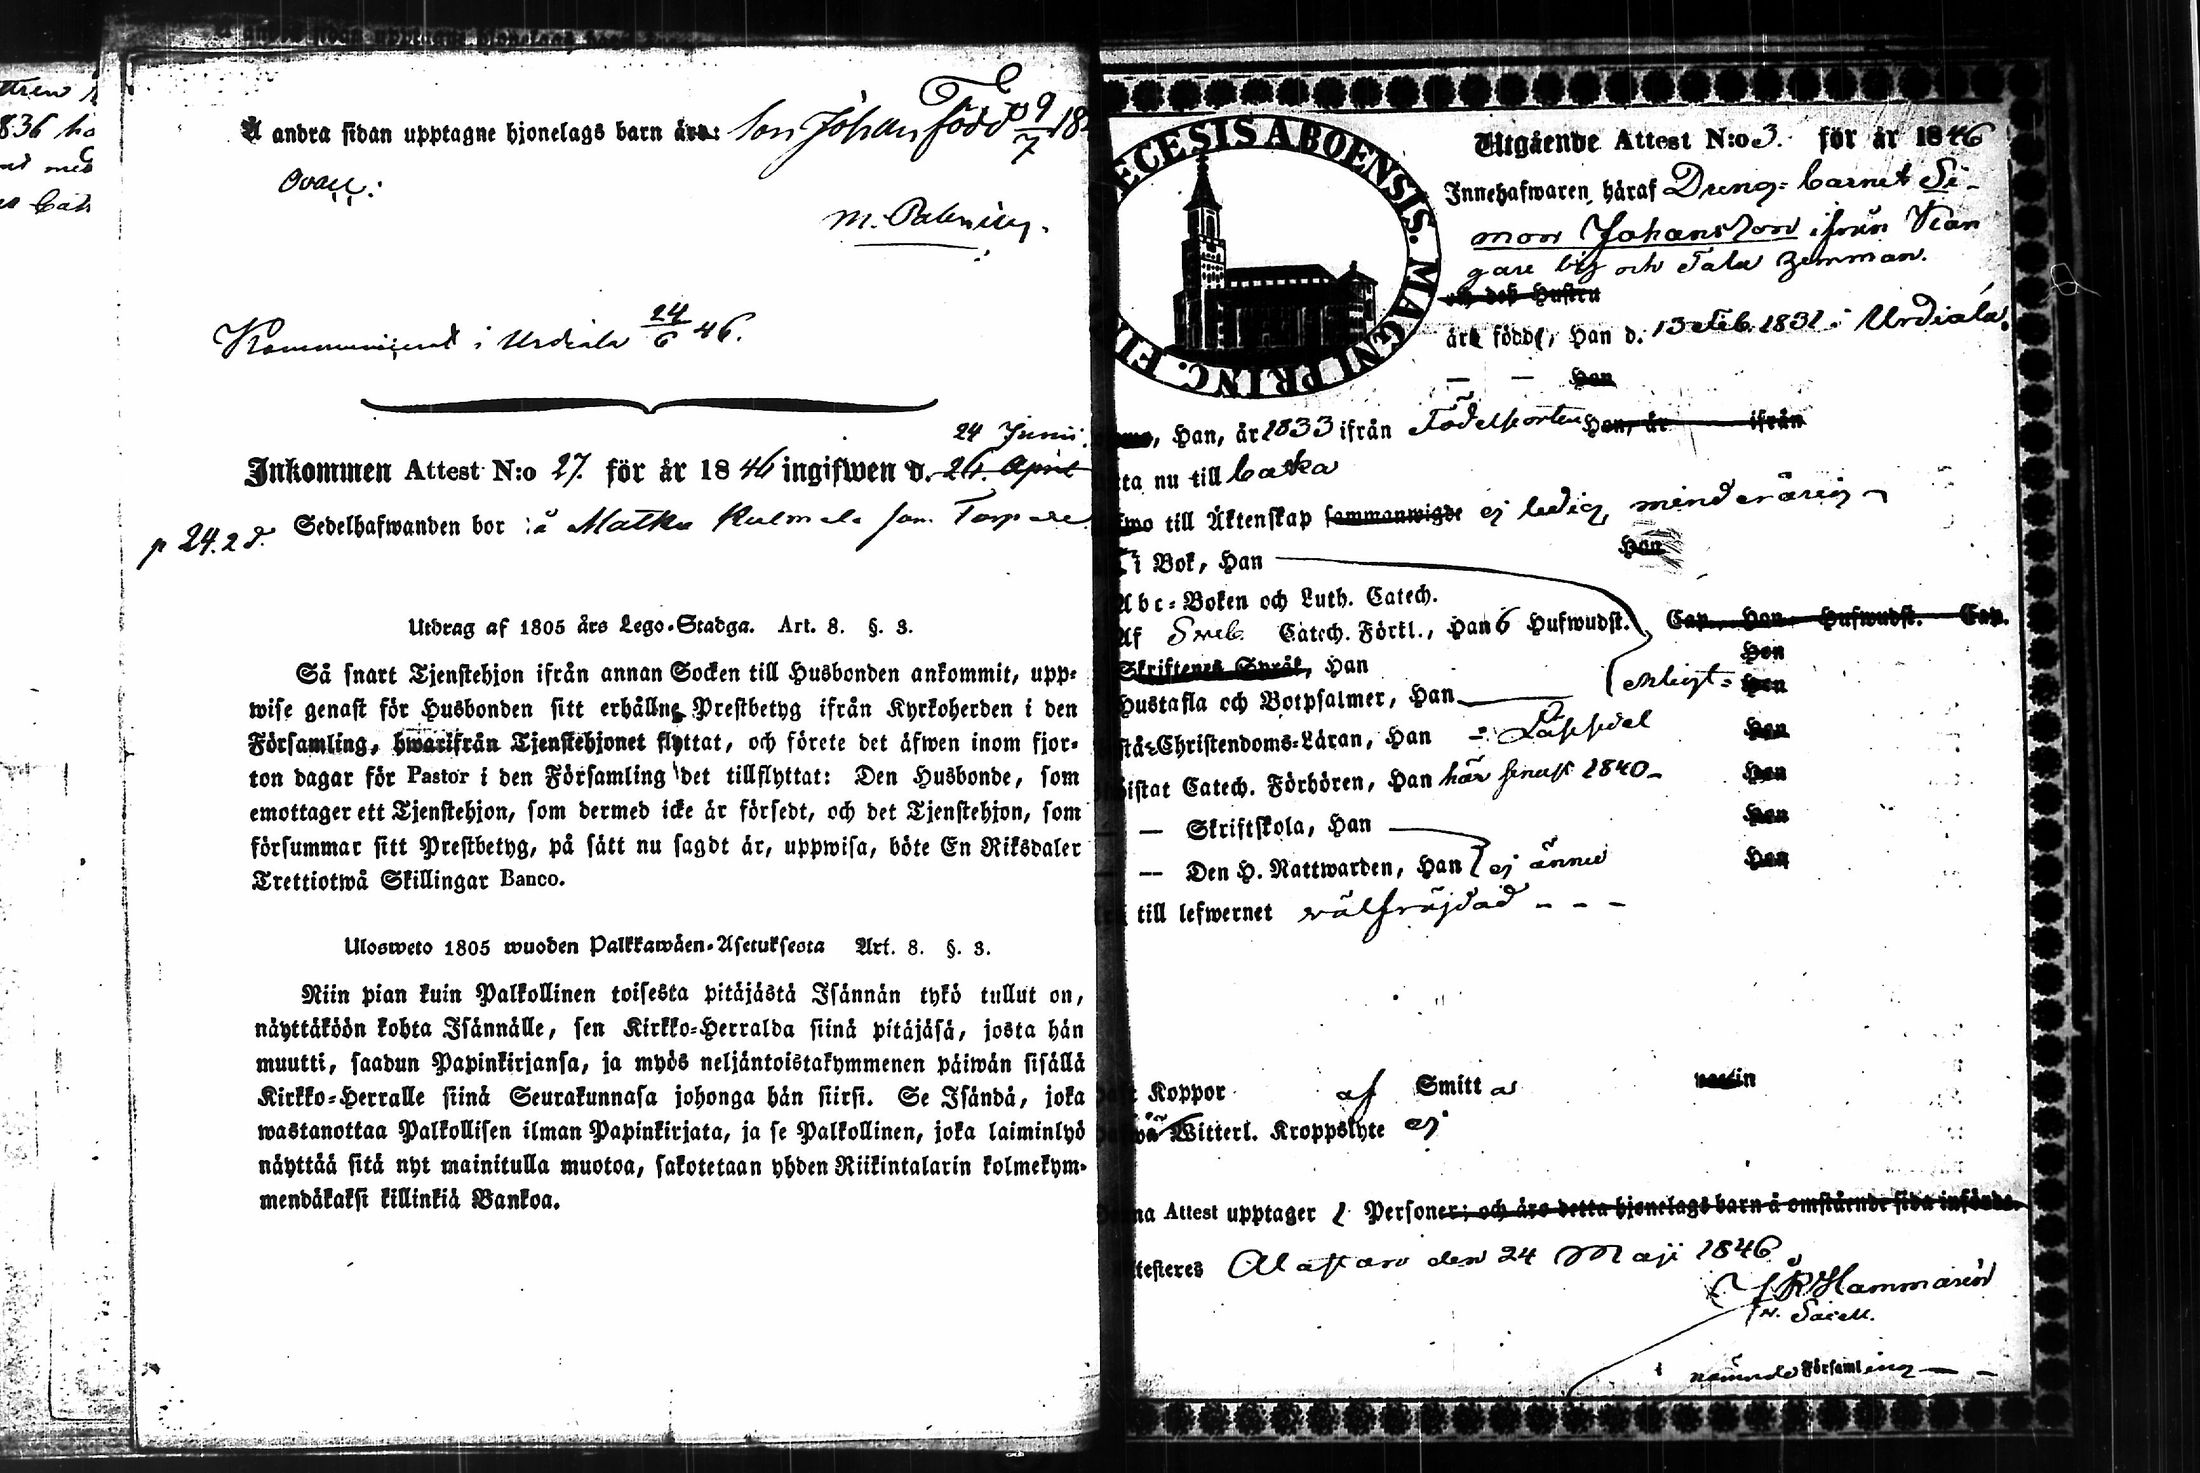 Å andra sidan upptagne hjonelags barn äro: son Johan Född 9/7 18
ovan:
Kommunicerat i Urdiala 24/6 46.
24 Junii
Inkommen Attest N:o 27. för år 1846 ingifwen d. 26. April
p 24.2d. Sedelhafwanden bor å Matku Kulmala som Torpare
Utdrag af 1805 års Lego-Stadga. Art. 8. §. 3.
Så snart Tjenstehjon ifrån annan Socken till Husbonden ankommit, upp-
wise genast för Husbonden sitt erhållne Prestbetyg ifrån Kyrkoherden i den
Församling, hwarifrån Tjenstehjonet flyttat, och förete det äfwen inom fjor-
ton dagar för Pastor i den Församling det tillflyttat: Den Husbonde, som
emottager ett Tjenstehjon, som dermed icke är försedt, och det Tjenstehjon, som
försummar sitt Prestbetyg, på sätt nu sagdt är, uppwisa, böte En Riksdaler
Trettiotwå Skillingar Banco.
Ulosweto 1805 wuoden Palkkawäen-Asetuksesta Art. 8. §. 3.
Niin pian kuin Palkollinen toisesta pitäjästä Isännän tykö tullut on,
näyttäköön kohta Isännälle, sen Kirkko-Herralda siinä pitäjäsä, josta hän
muutti, saadun Papinkirjansa, ja myös neljäntoistakymmenen päiwän sisällä
Kirkko-Herralle siinä Seurakunnasa johonga hän siirsi. Se Isändä, joka
wastanottaa Palkollisen ilman Papinkirjata, ja se Palkollinen, joka laiminlyö
näyttää sitä nyt mainitulla muotoa, sakotetaan yhden Riikintalarin kolmekym-
mendäkaksi killinkiä Bankoa.
ECESIS ABOENSIS. MAGNI PRINC. FIN
Utgående Attest N:o 3. för år 1846
Innehafwaren häraf Dreng-barnet Si-
mon Johansson ifrån Kan
gare by och Tala hemman.
och des Hustru
äro födde, Han d. 13 Feb. 1831 i Urdiala.
— — Hon
Han, år 1833 ifrån Födelseorten Hon, år ifrån
ta nu till baka
till Äktenskap sammanwigde ej ledig, minderårig
i Bok, Han Hon
Abc-Boken och Luth. Catech.
Af Sveb. Catech. Förkl., Han 6 Hufwudst. Cap. Hon Hufwudst. Cap.
Skriftenes Språk, Han Hon
Hustafla och Botpsalmer, Han Hon
stå Christendoms-Läran, Han Hon
istat Catech. Förhören, Han här senast 1840 Hon
— Skriftskola, Han Hon
— Den H. Nattwarden, Han ej ännu Hon
till lefwernet välfräjdad - - -
Koppor af Smitta
Witterl. Kroppslyte ej
na Attest upptager 1 Personer; och äro detta hjonelags barn å omstående sida införde.
testeres Alastaro den 24 Maji 1846
Hammarén
i nämnde Församling